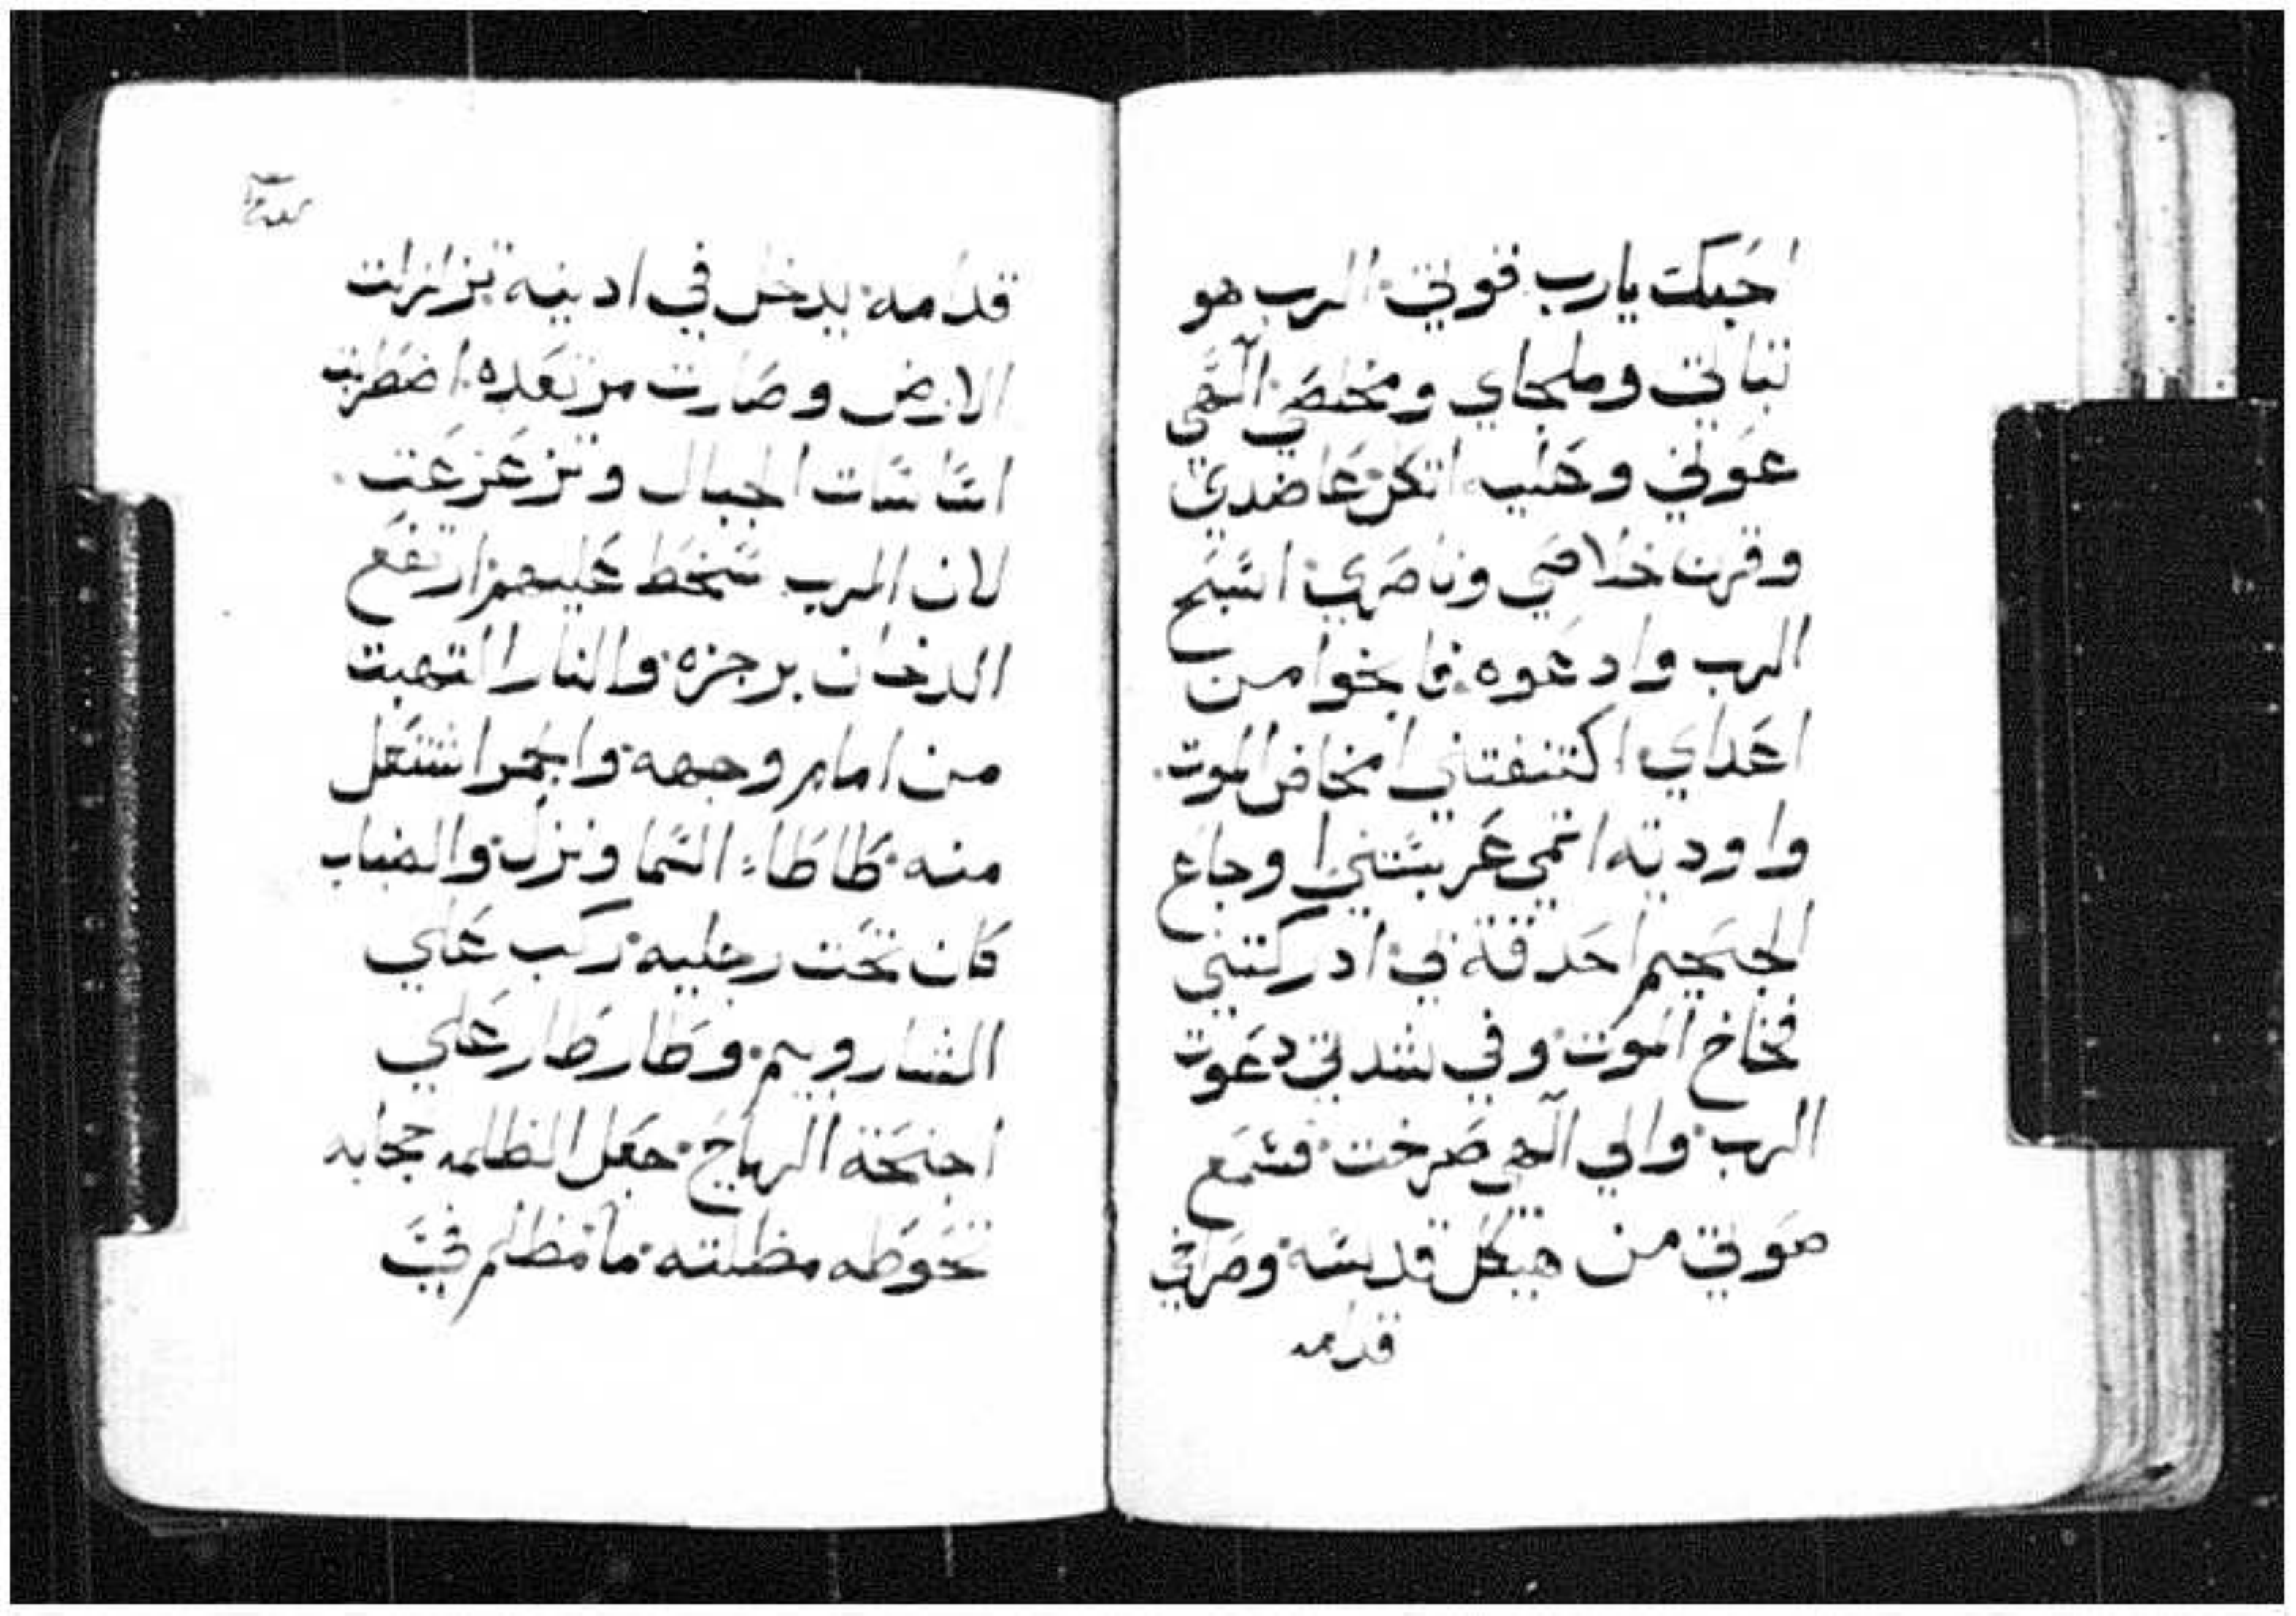 احبك يارب قوتي الرب هو
تباتي وملجاي ومخلصي الهي
عوني وعليه اتكل عاضدي
وقرن خلاصي وناصري اسبح
الرب وادعوه فانجوا من
اعداي اكتنفتني امخاض الموت
واودية اتمي غربستني اوجاع
الجحيم احدقة في ادركتني
فخاخ الموت وفي شدتي دعوت
الرب والي الهي صرخت فسمع
صوتي من هيكل قدسه وصراخي
قدامه
قدامه يدخل في ادنيه تزلزلت
الارض وصارت مرتعده اضطربت
اساسات الجبال وتزعزعت
لان الرب سخط عليهم ارتفع
الدخان برجزه والنار التهبت
من امام وجهه والجمر اشتعل
منه طاطاء السما ونزل والضباب
كان تحت رجليه ركب علي
الشاروبيم وطار طار علي
اجنحة الرياح جعل الظلمه حجابه
تحوطه مظلته ما مظلم في